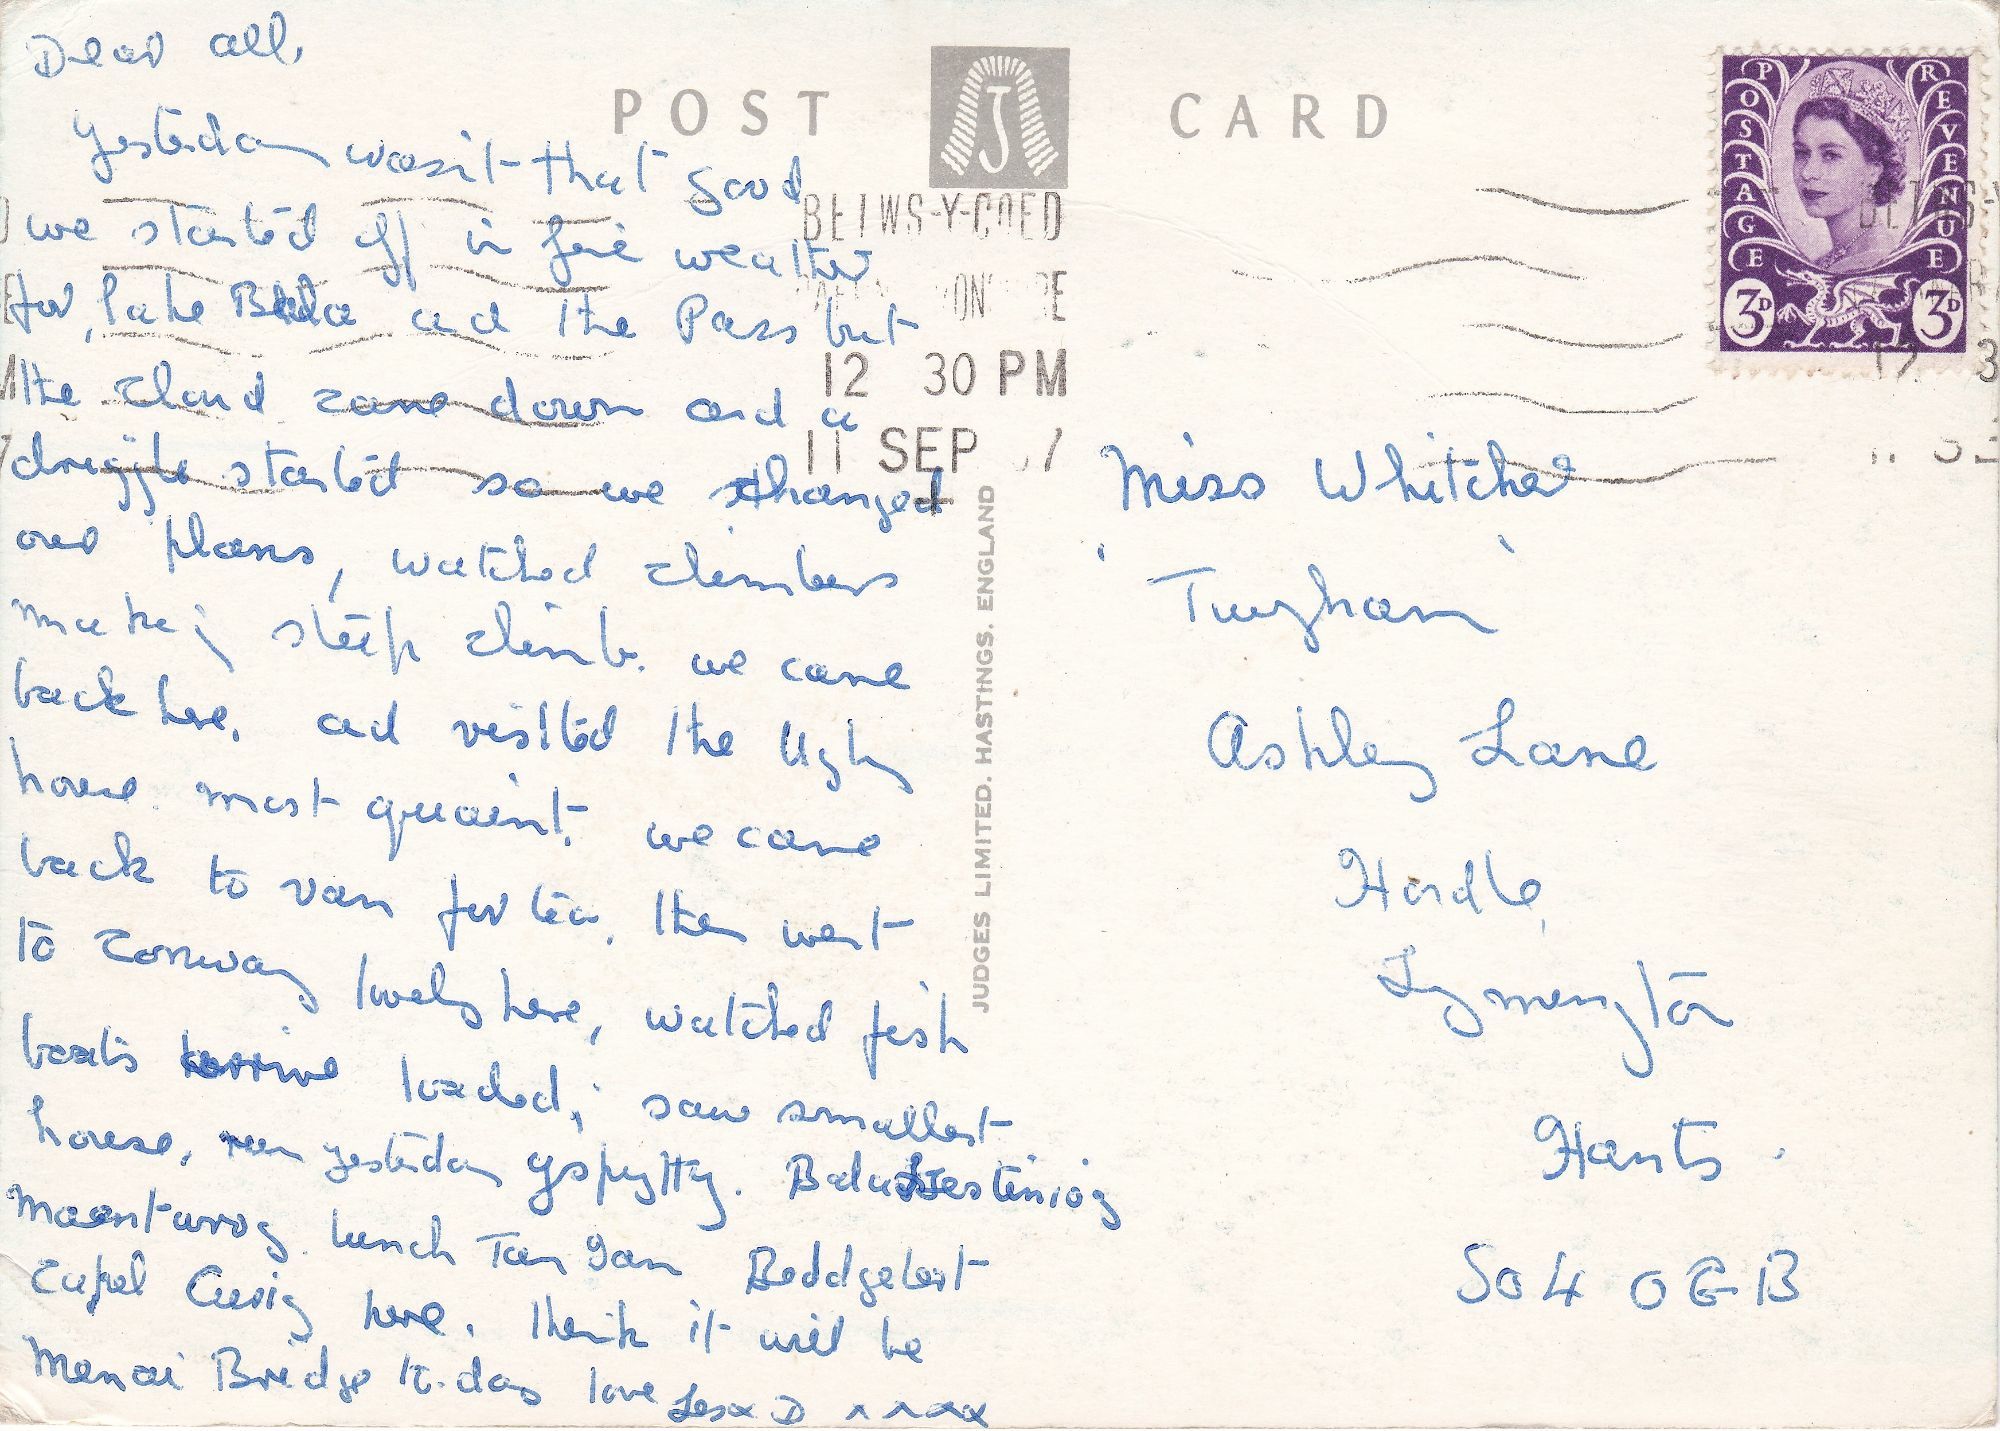 Dear all,
Yesterday wasn't that good
we started off in fine weather
for, lake Bala and the Pass but
the cloud came down and a
drizzle started so we changed
our plans, watched climbers
making steep climb. we came
back here, and visited the Ugly
house. most quaint. we came
back to van for tea. then went
to Conway lovely here, watched fish
boats arrive loaded, saw smallest
house, run yesterday yspytty. Bala Ffestiniog
Maentwrog. lunch Tan Beddgelert
Capel Curig here. think it will be
Menai Bridge to-day love Les D
POST CARD
J
BETWS-Y-COED
12 30 PM
11 SEP 7
JUDGES LIMITED. HASTINGS. ENGLAND
POSTAGE REVENUE
3D 3D
Miss Whitcher
Ashley Lane
Hordle,
Lymington
Hants.
SO4 0GB